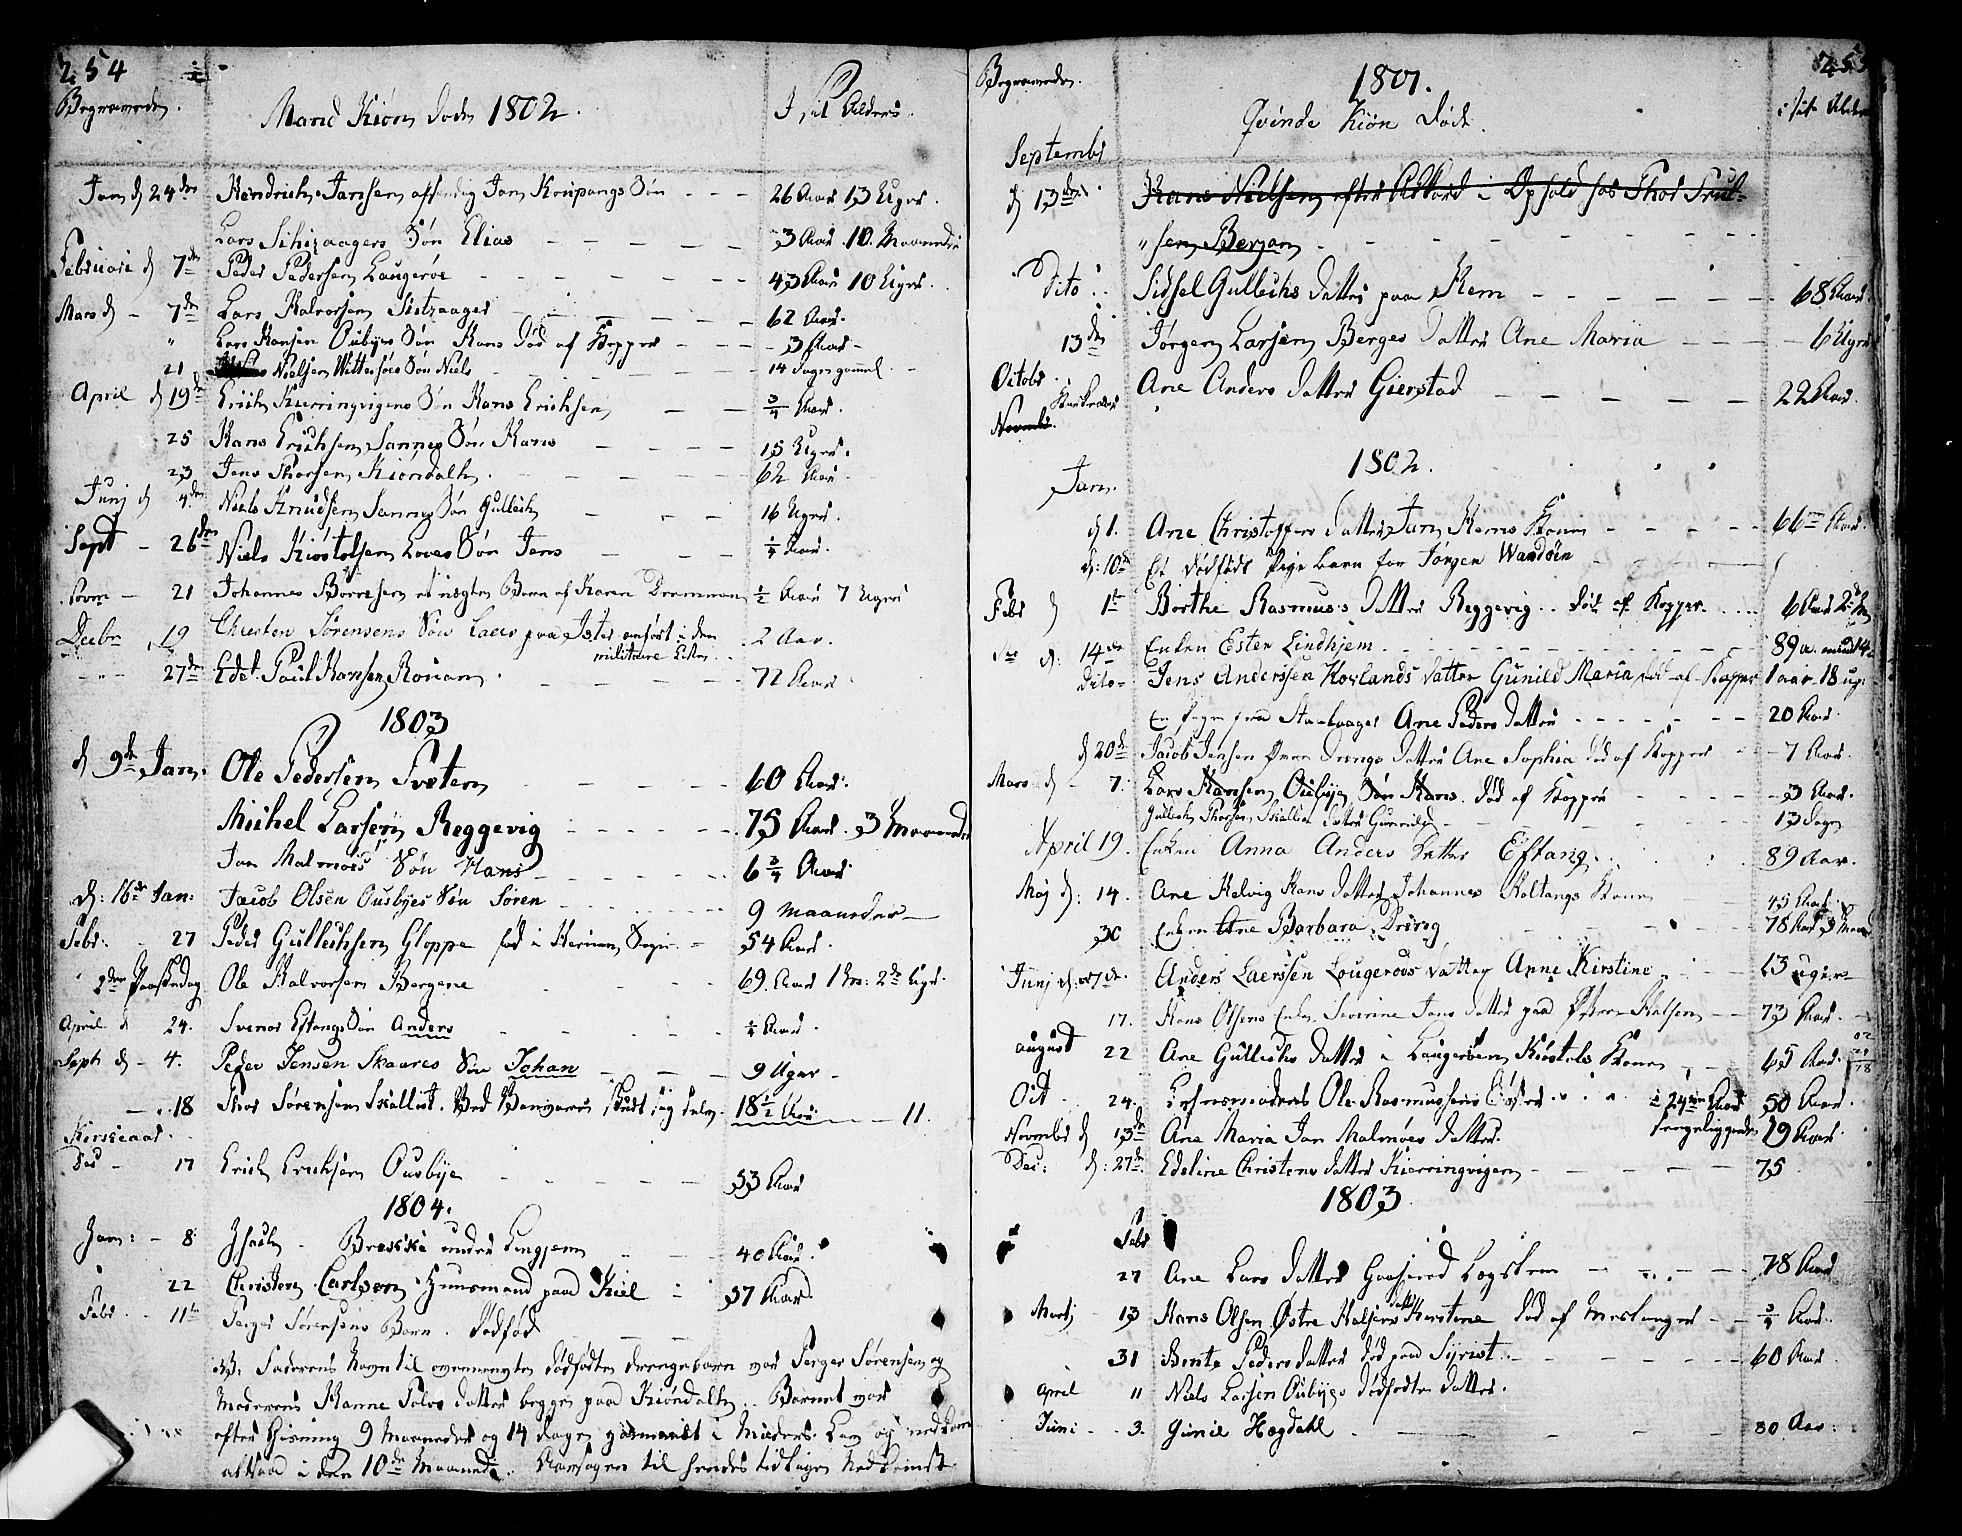 254
Begravede.
Mand Kiøn døde 1802.
I sit Alders
Jan d 24de Hendrich Jansen afsendig Jan Kaupangs Søn - - 26 Aar 13 Uger.
Lars Sitzaagers Søn Elias - - - - 3 Aar 10 Maaneder
Februari d 7de Peder Pedersen Laugerøe - - - 43 Aar 10 Uger.
Mars d - 7de Lars Halvorsen Sitzaager - - - 62 Aar.
" Lars Hansen Ousbyes Søn Hans død af Kopper - - - 3 Aar -
21 Nielsen Wittersøes Søn Niels - - - 14 Dage gammel.
April d 19de Erich Kierringvigens Søn Hans Erichsen - - 3/4 Aar.
25 Hans Erichsen Sannes Søn Hans - - - 15 Uger.
23 Jens Thorsen Kiøndalh. - - - 62 Aar
Junj d 4de Niels Knudsen Sannes Søn Gullich - - - 16 Uger.
Sept - 26de Niels Kiøstelsen Loves Søn Jens - - 1/4 Aar.
Novm - 21 Johannes Børresen et uægte Barn af Karen Drammen 1/2 Aar 7 Uger
Decbr 19 Christen Sørensens Søn Laers paa Istre anført i den 2 Aar.
militaire Liste.
- " - 27de Edel Poul Hansen Rønam. - - - 72 Aar
1803
d 9de Jan. Ole Pedersen Tveten - - - 60 Aar.
Michel Larsen Reggevig - - - - 75 Aar. 3 Maaneder
Jan Malmøes Søn Hans - - - 6 3/4 Aar
d: 16de Jan: Jacob Olsen Ousbyes Søn Søren - - - 9 Maaneder
Febr: - 27 Peder Gullichsen Gloppe fød i Hernæs Sogn - 54 Aar.
2den Paaskedag Ole Halvorsen Bergene - - - 69 Aar 1 M: 2de Uger.
April d 24. Svenor Eftangs Søn Anders - - - 1/4 Aar.
Septb d - 4. Peder Jensen Skaares Søn Johan - - - 9 Uger -
- . 18 Thor Sørensen Skallist. Ved Vanvare skudt sig selv. 18 1/2 Aar. 11.
Kirkegaar
Dec - 17 Erich Erichsen Ousbye - - - 53 Aar
1804.
Jan: - 8 Isach - Brekke under Lingjem - - 40 Aar.
22 Christen Carlsen Huusmand paa Kiel - - 37 Aar
Febr. - 11te Torger Sørensens Barn. Dødfød - -
NB: Faderens Navn til ovenmeldte dødfødte Drengebarn var Torger Sørensen og
Moderens Hanne Pales Datter begge paa Kiøndalh.. Barnet var
efter Gisning 9 Maaneder og 14 Dage gammelt i Moders Liv og nedkom
altsaa i den 10de Maaned. Aarsagen til hendes tidlige Nedkomst
Begravede.
1801.
Qvinde Kiøn Døde.
i sit Alder
255
Septembr
d 13de. Hans Nielsen efter Akkord i Ophold hos Thor Trul-
"sen Bergan - - - -
Dito: Sidsel Gullichs Datter paa Rem - - - - 68 Aar.
13de Jørgen Larsen Berges Datter Ane Maria - - - 6 Uger
Octobr. Ane Anders Datter Gierstad - - - - 22 Aar.
Novembr.
1802.
Jan.
d 1. Ane Christoffers Datter Jan Rems Kone - - - 66 Aar.
d: 10de Et dødfødt Pige barn for Jørgen Wandøin - - - /
Febr d 1te Berthe Rasmus's Datter Reggevig.. død af Kopper. ... 6 Aar 2de M
d: 14de Enken Ester Lindhjem. - - - - 89 a. mind 14
Dito - Jens Anderssen Hovlands Datter Gunild Maria død af Kopper 1 aar 18 ug:
En Pige fra Staalaager Ane Peders Datter - - - - 20 Aar.
d 20de Jacob Jensen Datter Ane Sophia død af Kopper - - 7 Aar.
Mars d - 7. Lars Hansen Ousbye Søn Hans. død af Kopper - - - 3 Aar.
Gullich Thorsen Skallist Datter Gunnild - - - 13 Dage
April 19. Enken Anna Anders Datter Eftang. . . . 89 Aar.
Maj d: 14. Ane Helvig Hans Datter Johannes Holtangs Kone - - 45 Aar
30 Enken Ane Barbara Dring - - - 78 Aar 3 Maan
Junj d: 7de. Anders Laerssen Lougeroos Datter Anne Kirstine. - - 13 uger
17. Hans Olsens Enke Severine Jans Datter paa Østre Halsen - - 73 Aar.
august 22 Ane Gullichs Datter i Laugerøen Kiøstels Kone - - 65 Aar.
Oct - 24. Ole Rasmussens Søster. . . i 24 Aar 50 Aar.
sengeliggende
Novembr d 13de Ane Maria Jan Malmøes Datter. 19 Aar.
Dec: d: 27de. Edeline Christens Datter Kierringvigen - - - - 75
1803
Febr
27 Ane Lars Datter Gaaserød - - - 78 Aar
Martj - 13 Hans Olsen Østre Halsens Datter Kirstine død af Meslinger - - 3/4 Aar.
31 Bente Peders Datter død paa Syrist. - - - 60 Aar
April 11 Niels Larsen Ousbyes dødfødte Datter.
Juni - - 3. Gunil Hegdahl - - - 80 Aar: